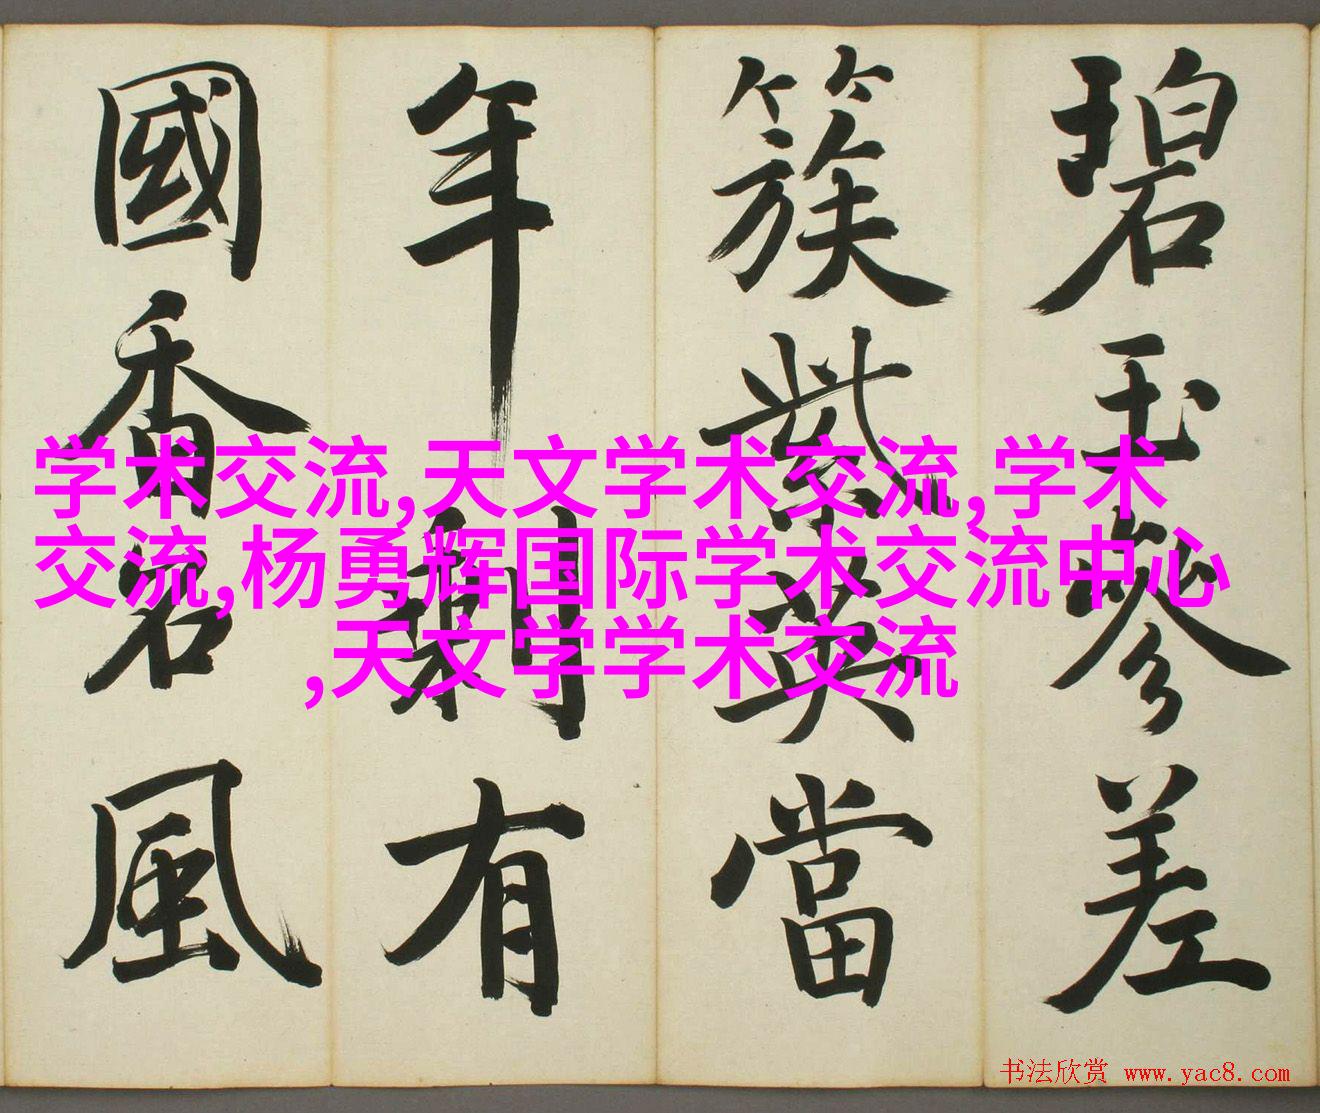 碧玉參差
簇紫英當
年剩有
國香名風
学术交流,天文学术交流,学术
交流,杨勇辉国际学术交流中心
,天文学学术交流
书法欣赏 www.yac8.com